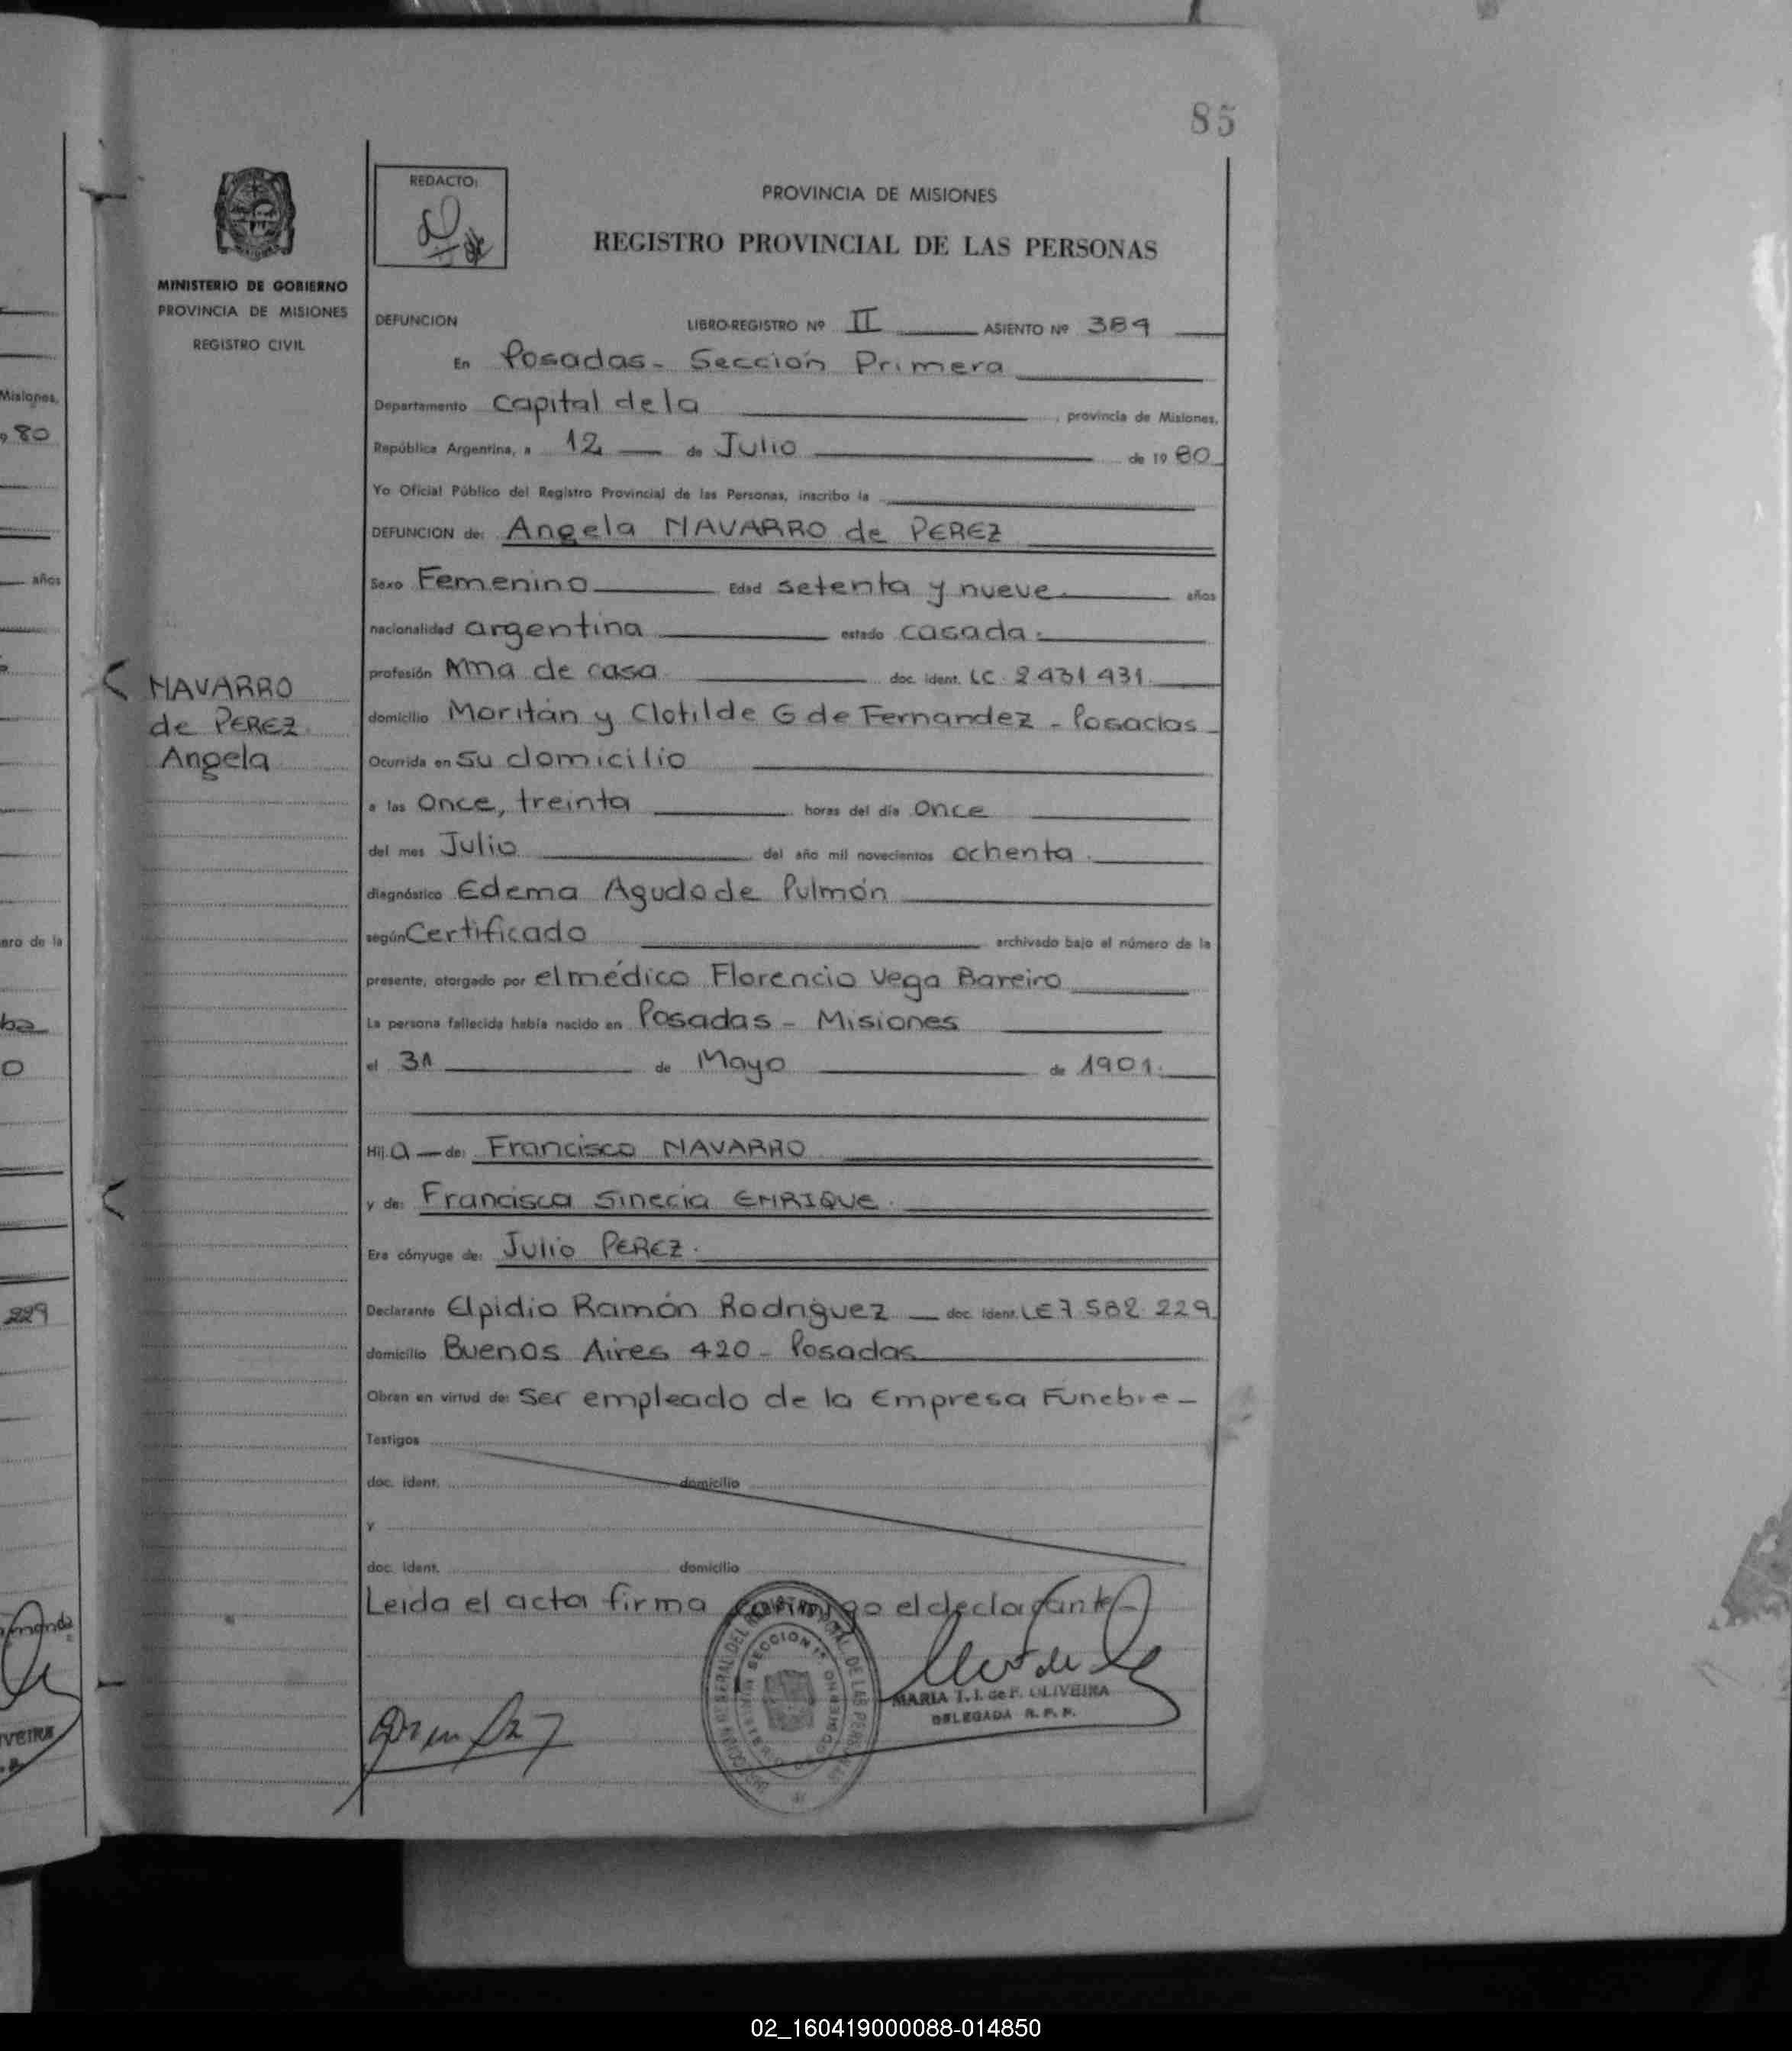 85
REDACTO:
PROVINCIA DE MISIONES
REGISTRO PROVINCIAL DE LAS PERSONAS
MINISTERIO DE GOBIERNO
PROVINCIA DE MISIONES
REGISTRO CIVIL
DEFUNCION LIBRO-REGISTRO Nº II ASIENTO Nº 389
En Posadas - Sección Primera
Departamento Capital de la , provincia de Misiones,
República Argentina, a 12 de Julio de 19 80
Yo Oficial Público del Registro Provincial de las Personas, inscribo la
DEFUNCION de: Angela NAVARRO de PEREZ
Sexo Femenino Edad setenta y nueve años
nacionalidad argentina estado casada.
profesión Ama de casa doc. ident. LC. 2.431.431.
domicilio Moritán y Clotilde G de Fernandez - Posadas
Ocurrida en su domicilio
a las Once, treinta horas del día Once
del mes Julio del año mil novecientos ochenta.
diagnóstico Edema Agudo de Pulmón
según Certificado archivado bajo el número de la
presente, otorgado por el médico Florencio Vega Bareiro
La persona fallecida había nacido en Posadas - Misiones
el 31 de Mayo de 1901.
Hij a de: Francisco NAVARRO
y de: Francisca Sinecia ENRIQUE.
Era cónyuge de: Julio PEREZ.
Declarante Elpidio Ramón Rodríguez doc. ident. LE 7.582.229
domicilio Buenos Aires 420 - Posadas
Obran en virtud de: Ser empleado de la Empresa Funebre -
Testigos
doc. ident. domicilio
y
doc. ident. domicilio
Leida el acta firma conmigo el declarante -
MARIA T. I. de F. OLIVEIRA
DELEGADA R. P. P.
NAVARRO
de PEREZ.
Angela
Misiones,
80
años
ero de la
229
02_160419000088-014850